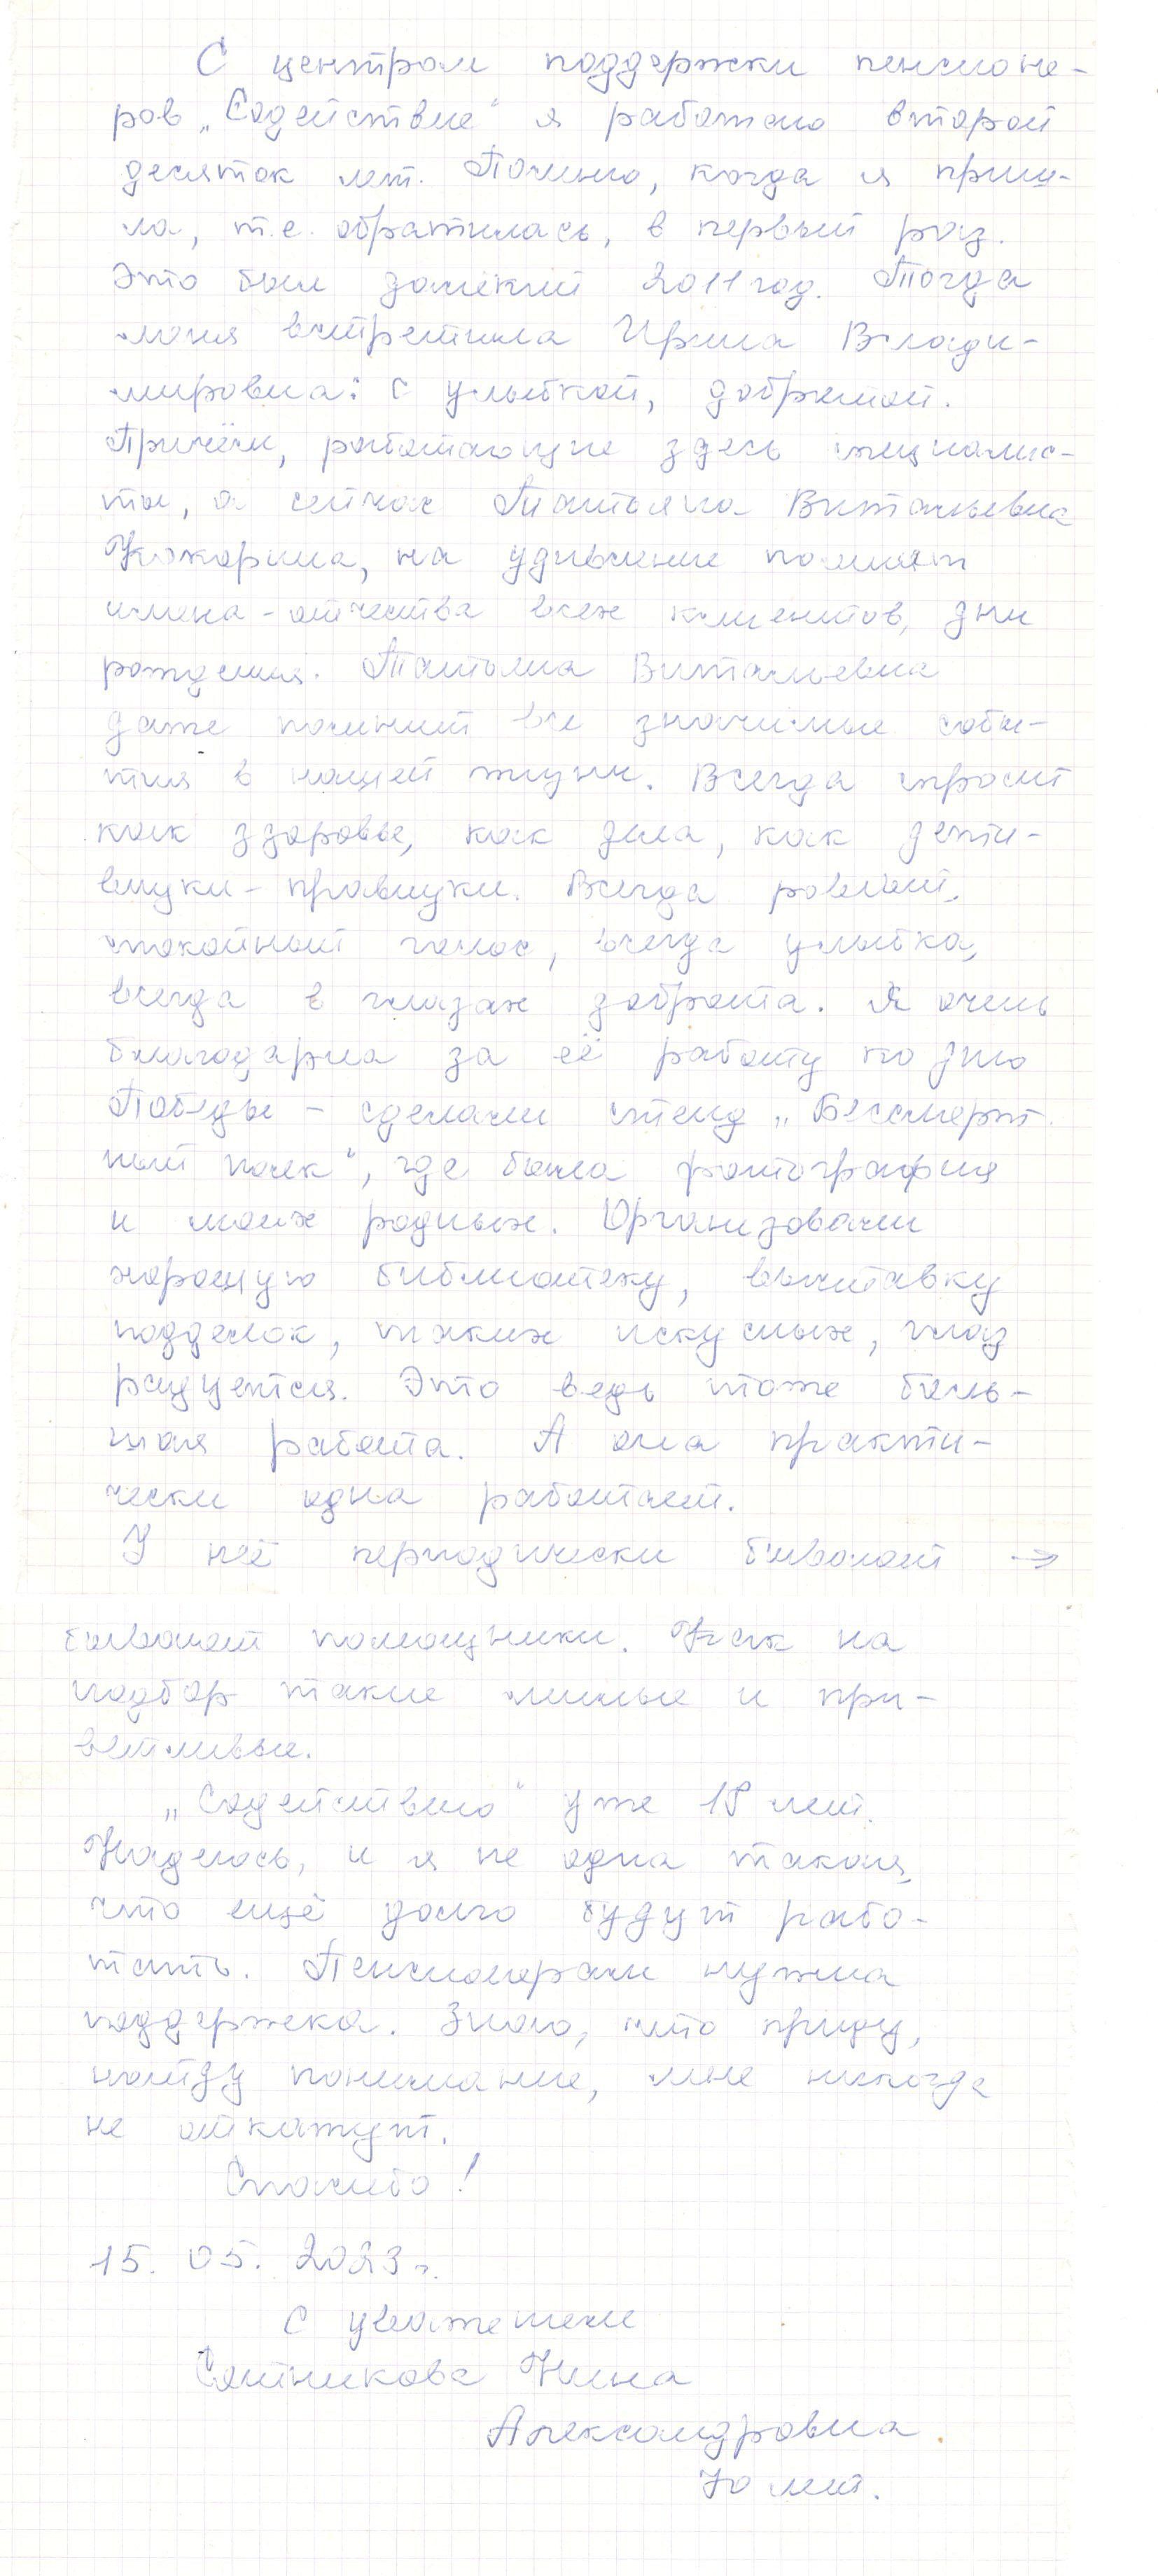 С центром поддержки пенсионе-
ров „Содействие“ я работаю второй
десяток лет. Помню, когда я приш-
ла, т.е. обратилась, в первый раз.
Это был далёкий 2011 год. Тогда
меня встретила Ирина Влади-
мировна: с улыбкой, добротой.
Причём, работающие здесь специалис-
ты, а сейчас Татьяна Витальевна
Кокорина, на удивление помнят
имена-отчества всех клиентов, дни
рождения. Татьяна Витальевна
даже помнит все значимые собы-
тия в нашей жизни. Всегда спросит
как здоровье, как дела, как дети-
внуки-правнуки. Всегда ровный,
спокойный голос, всегда улыбка,
всегда в глазах доброта. Я очень
благодарна за её работу ко дню
Победы – сделали стенд „Бессмерт-
ный полк“, где была фотография
и моих родных. Организовали
хорошую библиотеку, выставку
подделок, таких искусных, глаз
радуется. Это ведь тоже боль-
шая работа. А она практи-
чески одна работает.
У неё периодически бывают →
бывают помощники. Как на
подбор такие милые и при-
ветливые.
„Содействию“ уже 18 лет.
Надеюсь, и я не одна такая,
что ещё долго будут рабо-
тать. Пенсионерам нужна
поддержка. Знаю, что приду,
найду понимание, мне никогда
не откажут.
Спасибо!
15. 05. 2023 г.
С уважением
Сятникова Нина
Александровна.
70 лет.